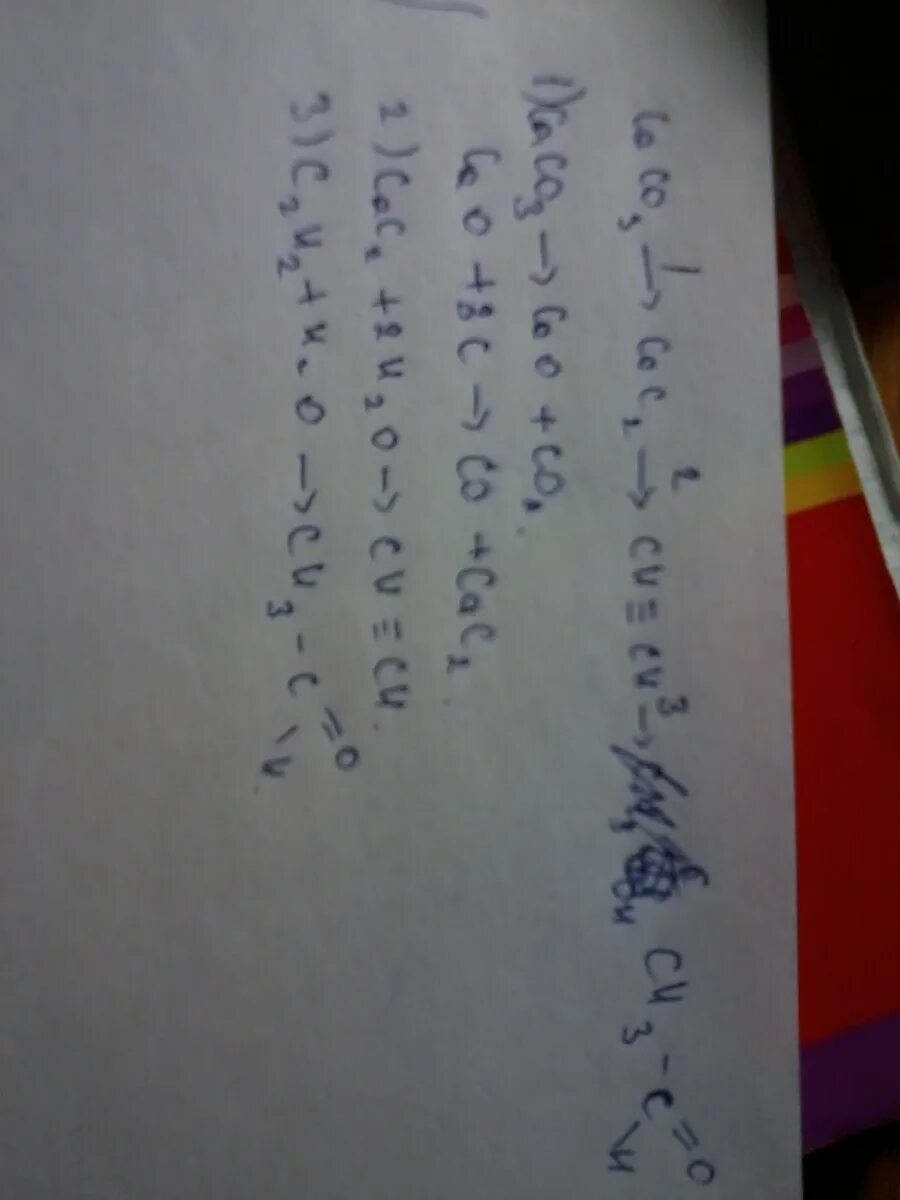 CaCO₃ →¹ CaC₂ →² CH≡CH →³ CH₃-C=O\H
1) CaCO₃ → CaO + CO₂.
CaO + 3C → CO + CaC₂.
2) CaC₂ + 2H₂O → CH≡CH.
3) C₂H₂ + H₂O → CH₃-C=O\H.